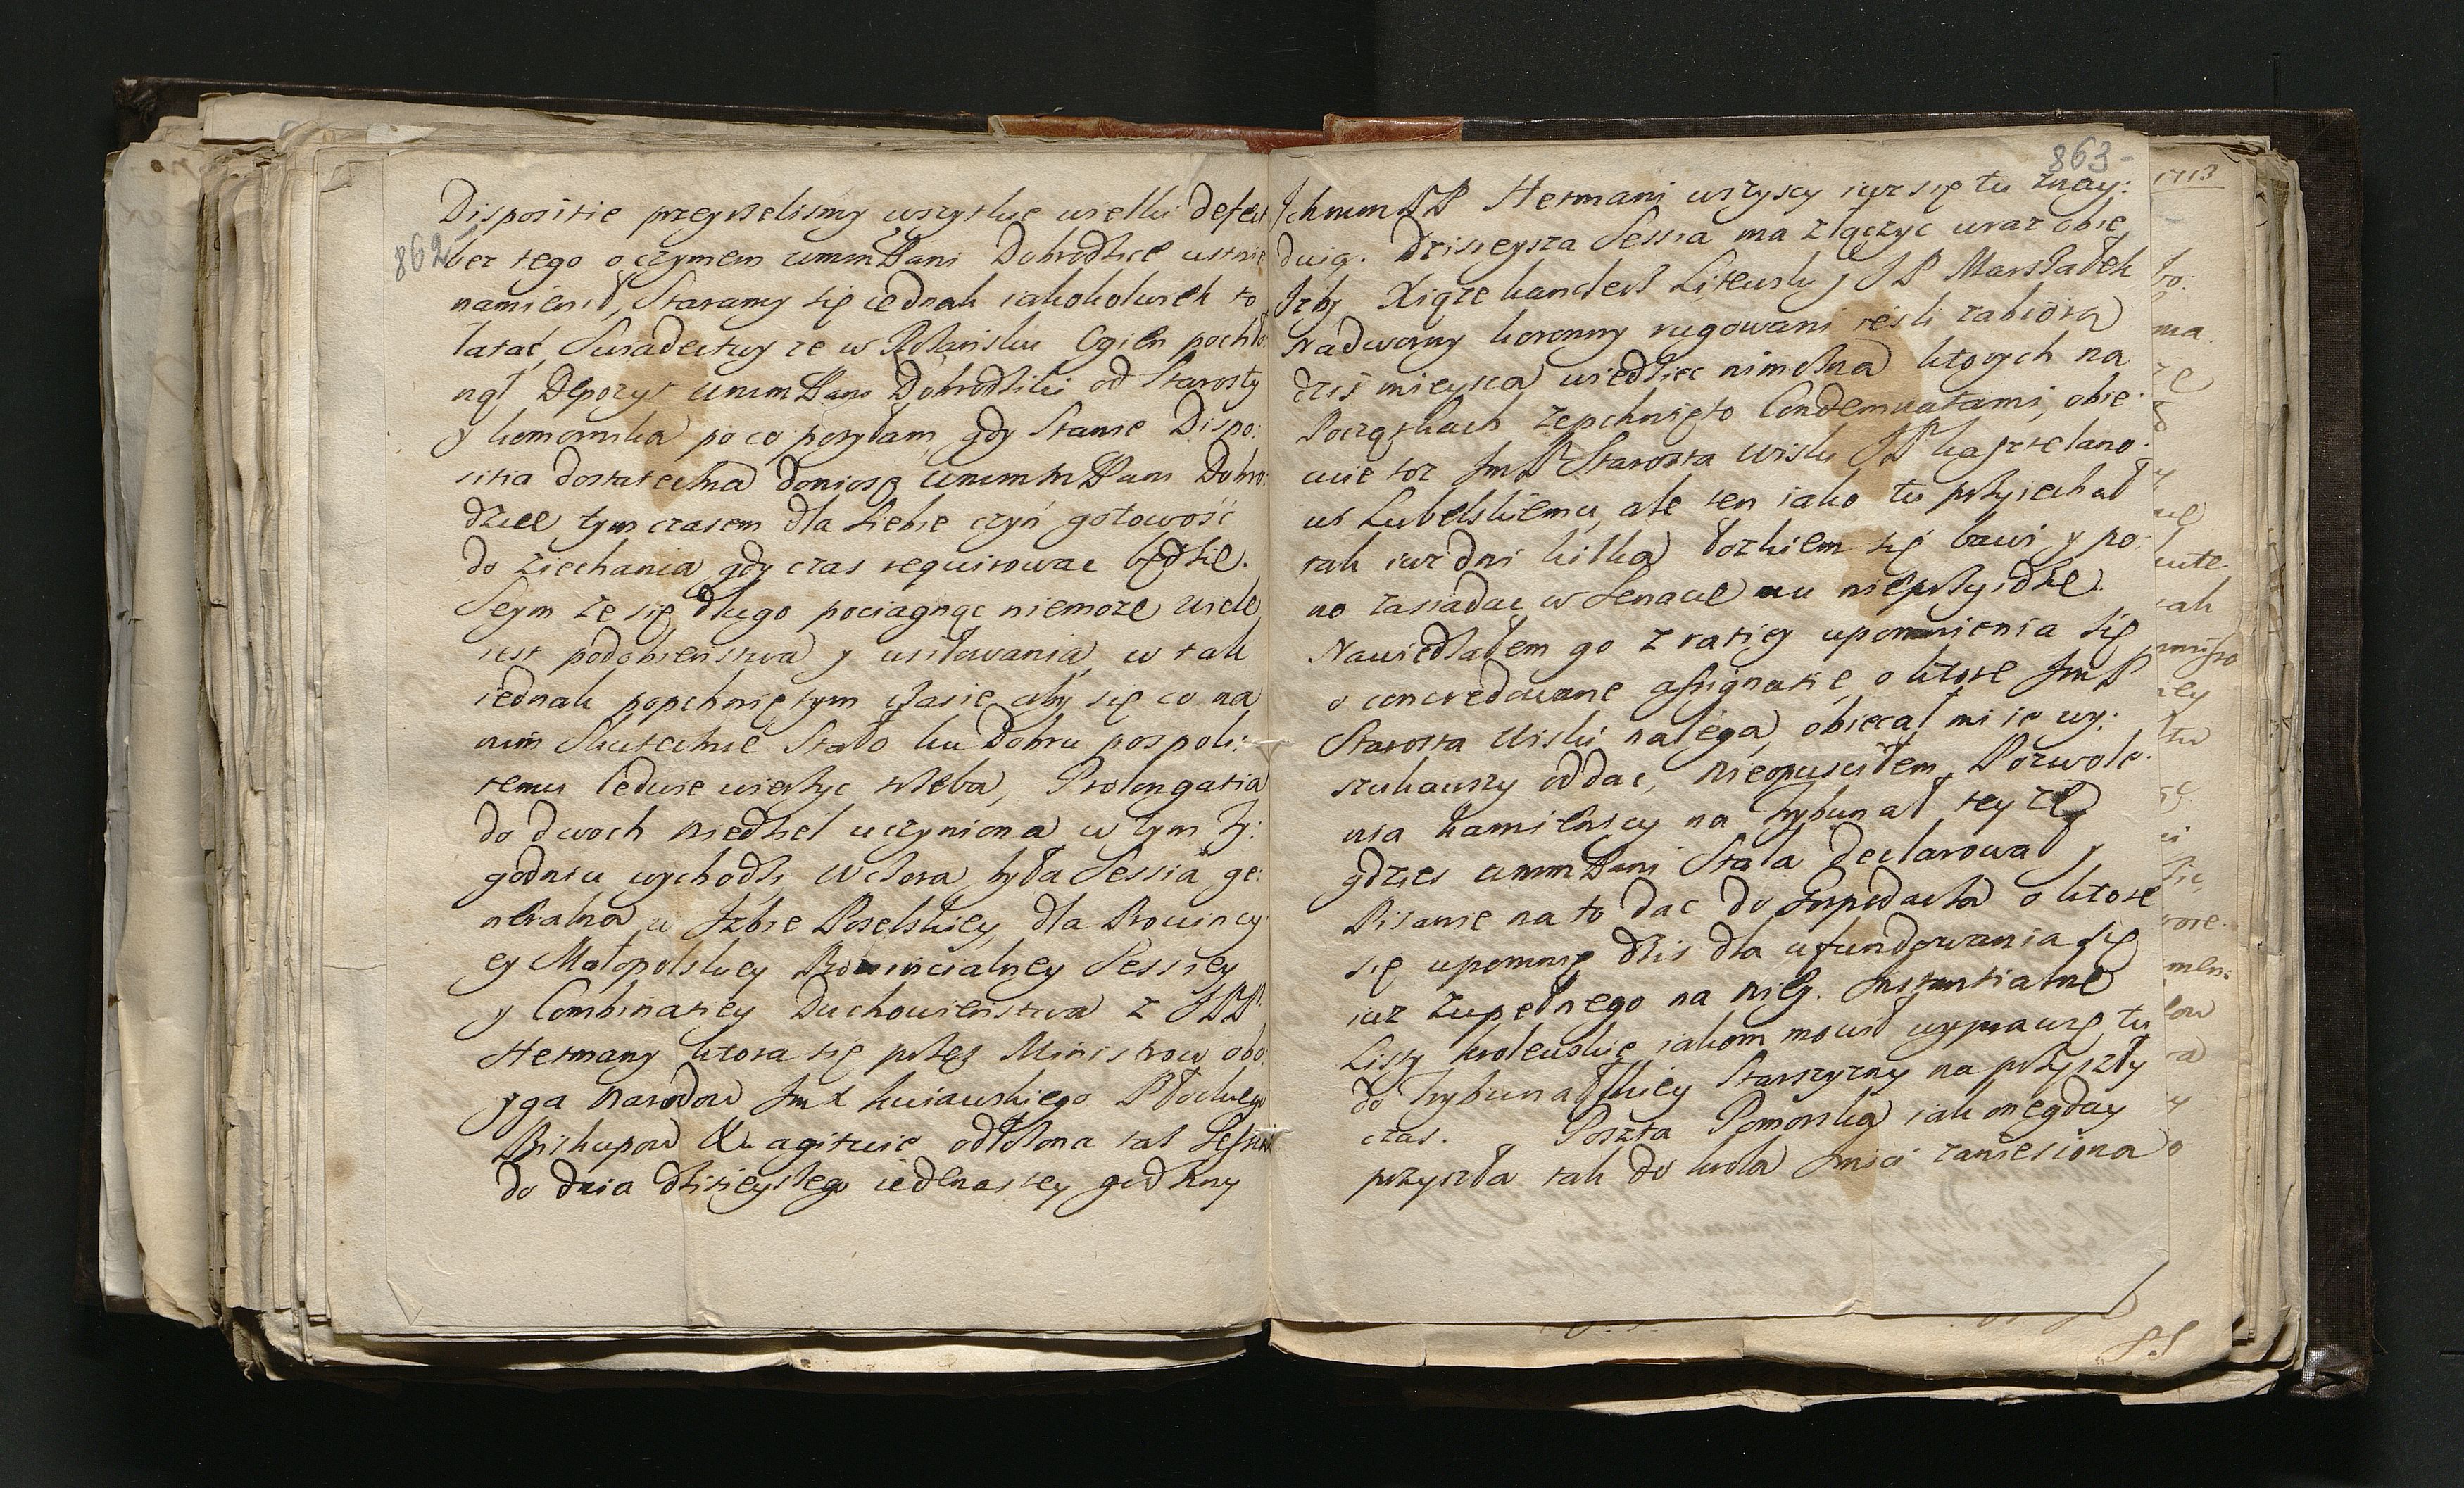 862
Dispositie przeyrzelismy wszytkie wielki defekt
bez tego o czymem WMM Pani Dobrodhce ustnie
namienił, Staramy się iednak iakokolwiek to
łatać, Swiadectwy ze w Gdańsku Ogień pochło:
nął Depozyt WMM Pani Dobrodziki od Starosty
y komornika po co posyłam, gdy Stanie Dispo:
sitia dostateczna doniosę WMM Pani Dobro:
dzice tym czasem dla siebie czyń gotowość
do ziechania gdy czas requirowac będzie.
Seym ze się długo pociagnąc niemoze wiele
iest podobienstwa y usiłowania, w tak
iednak popchniętym czasie, aby się co na
nim Skutecznie Stało ku Dobru pospoli:
temu ledwie wierzyc trzeba, Prolongatia
do dwoch niedziel uczyniona w tym ty:
godniu wychodzi, wczora była Sessia ge:
neralna w Izbie Poselskiey, dla Prowincy
ey Małopolskiey Prowincialney Sessiey
y Combinatiey Duchowienstwa z JPP
Hetmany ktora się przez Ministrow obo:
yga Narodow JmX Kuiawskiego Płockiego
Biskupow agituie odłozona tak Sessia
do dnia dzisieyszego iedenastey godziny
863-
Ichmm PP Hetmani wszyscy iuz się tu znay:
duią. Dzisieysza Sessia ma złączyc wraz obie
Izby Xiąze kanclerz Litewsky y JP Marszałek
Nadworny koronny rugowani iesli zabiorą
dzis mieysca wiedziec nimozna ktorych na
Początkach zepchnięto Condemnatami, obie:
cuie toz JmP Starosta Wiski JP kasztelano:
wi Lubelskiemu, ale ten iako tu przyiechał
tak iuz dni kilka łozkiem się bawi y po:
no zasiadac w Senacie mu nieprzyidzie.
Nawiedzałem go z ratiey upomnienia się
o concredowane assignatie, o ktore JmP
Starosta Wiski nalega, obiecał mi ie wy:
szukawszy oddac, nieopusciłem Pozwole:
nia kamienicy na trybunał teyze
gdzies WMM Pani Stała declarował y
Pisanie na to dac do Gospodarza o ktore
się upomnię dzis dla ufundowania się
iuz zupełnego na niey. Instantialne
Listy krolewskie iakom mowił wyprawię tu
do trybunałskiey Starszyzny na przyszły
czas. Poszta Pomorska iak onegday
przyszła tak do krola Jmści zaniesiona
1713